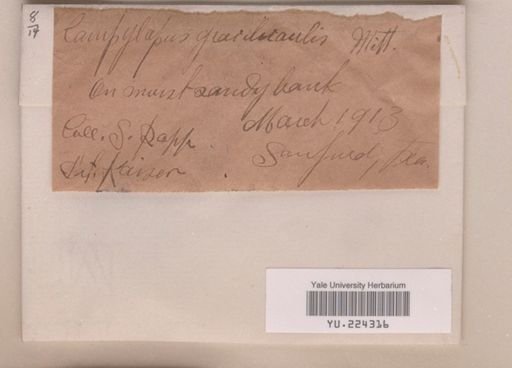 8/14
Campylopus gracilicaulis Mitt.
On moist sandy bank
March 1913
Coll. S. Rapp.
Sanford, Fla.
Det.
Yale University Herbarium
YU.224316